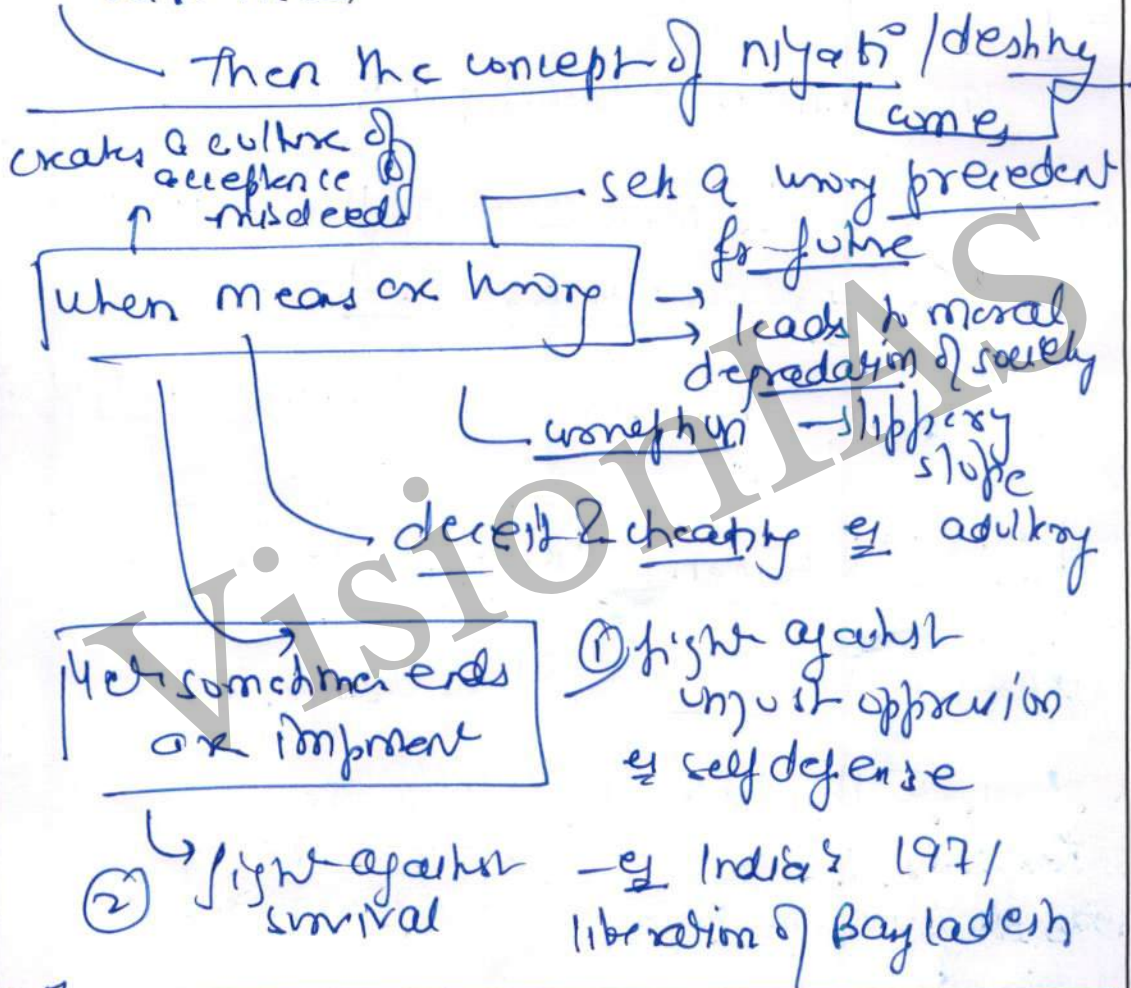 then the concept of niyati / destiny
comes
creates a culture of
acceptance of
misdeeds
sets a wrong precedent
for future
when means are wrong
→ leads to moral
degradation of society
corruption – slippery
slope
deceit & cheating eg adultery
Yet sometimes ends
are important
① fight against
unjust oppression
eg self defense
② fight against
survival
- eg India's 1971
liberation of Bangladesh
VisionIAS